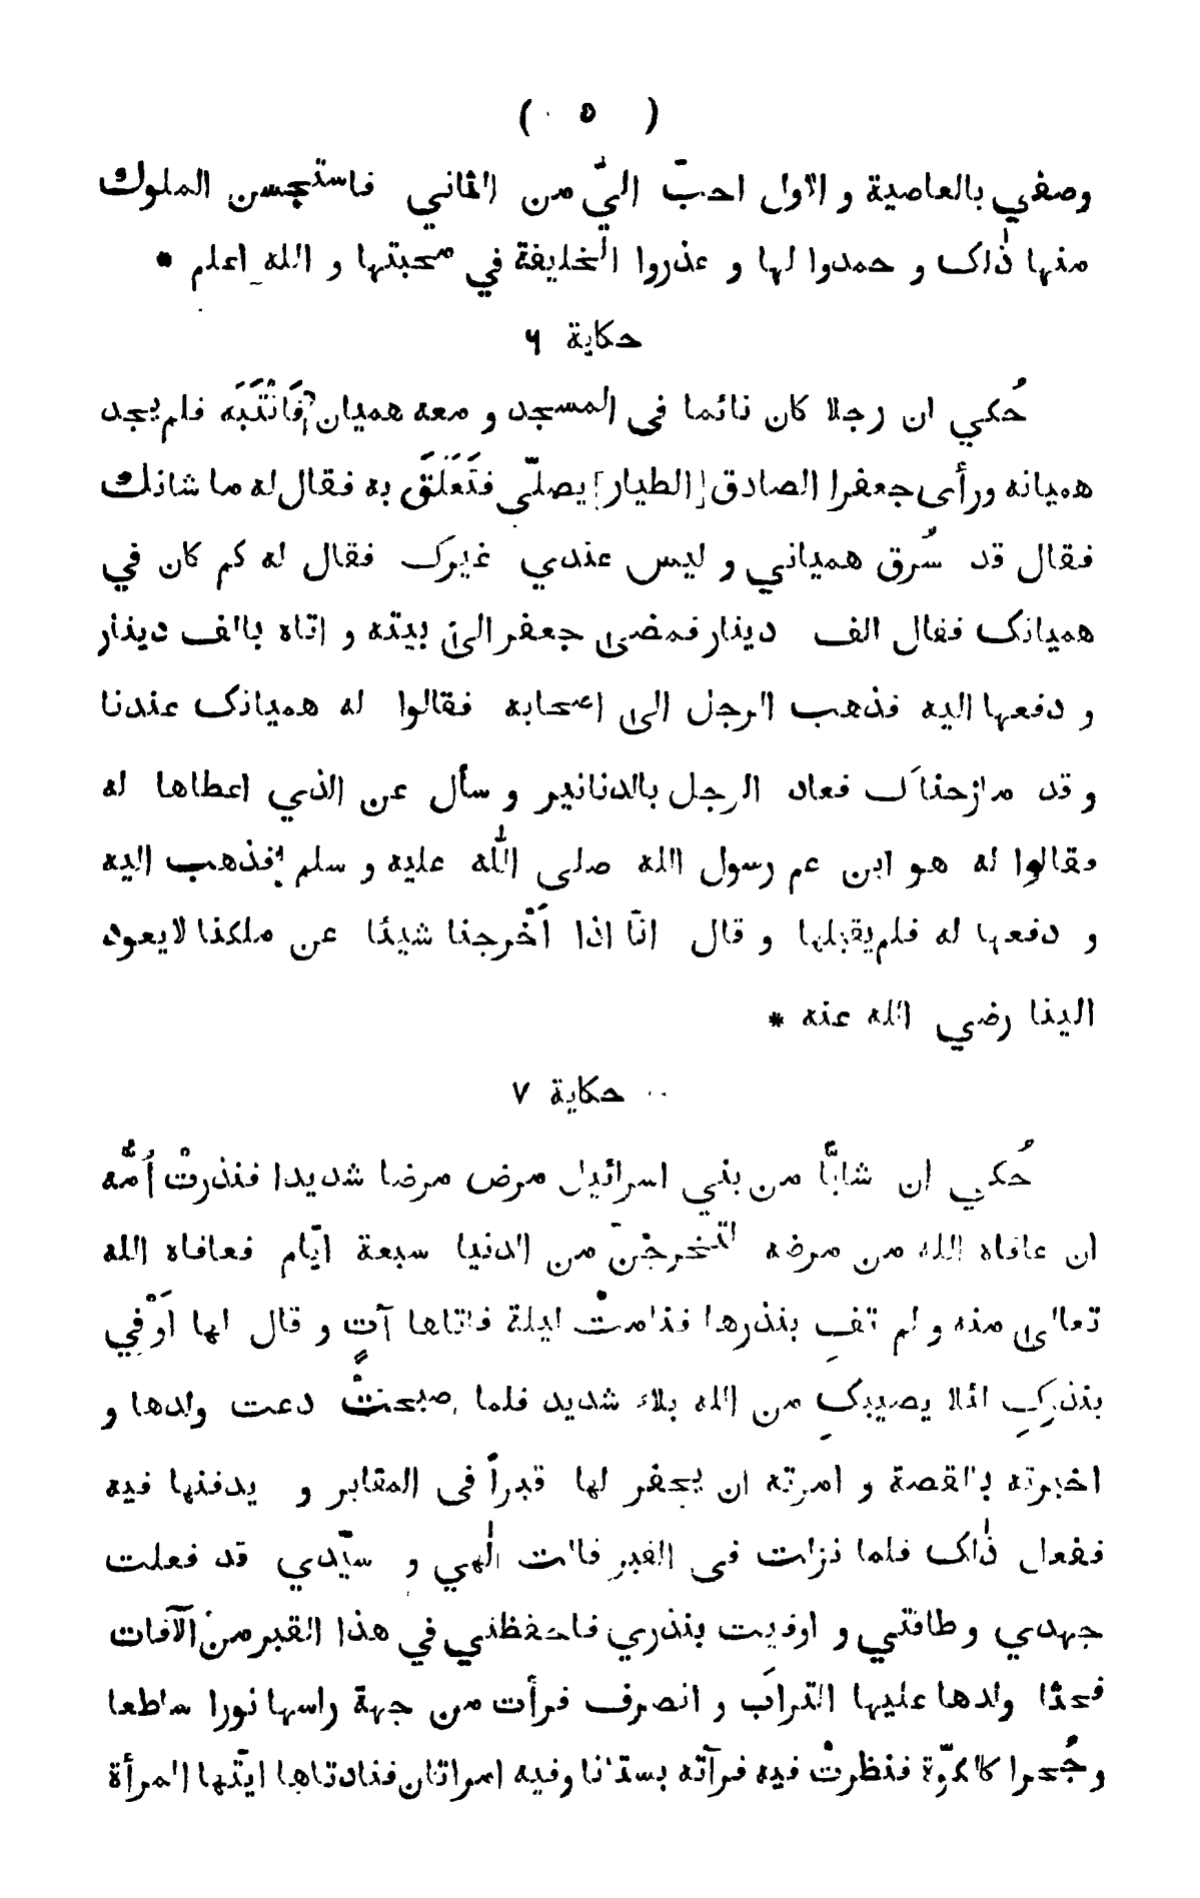 ( ٥ )
وصفي بالعاصية و الاول احبّ اليّ من الثاني فاستحسن الملوك
منها ذٰلك و حمدوا لها و عذروا الخليفة في محبتها و الله اعلم *
حكاية ٦
حُكي ان رجلا كان نائما فى المسجد و معه هميان فَانْتَبَهَ فلم يجد
هميانه ورأى جعفرا الصادق [الطيار] يصلّى فتَعَلَقَ به فقال له ما شانك
فقال قد سُرق هميانى و ليس عندي غيرك فقال له كم كان في
هميانك فقال الف دينار فمضى جعفر الى بيته و اتاه بالف دينار
و دفعها اليه فذهب الرجل الى اصحابه فقالوا له هميانك عندنا
و قد مازحناك فعاد الرجل بالدنانير و سأل عن الذي اعطاها له
فقالوا له هو ابن عم رسول الله صلى الله عليه و سلم فذهب اليه
و دفعها له فلم يقبلها و قال انّا اذا اَخْرجنا شيئا عن ملكنا لا يعود
الينا رضي الله عنه *
حكاية ٧
حُكي ان شابًّا من بني اسرائيل مرض مرضا شديدا فنذرتْ اُمُّه
ان عافاه الله من مرضه لتخرجنّ من الدنيا سبعة ايّام فعافاه الله
تعالى منه و لم تفِ بنذرها فنامتْ ليلة فاتاها آتٍ و قال لها اَوْفِي
بنذركِ لئلا يصيبكِ من الله بلاء شديد فلما صبحتْ دعت ولدها و
اخبرته بالقصة و امرته ان يحفر لها قبراً فى المقابر و يدفنها فيه
ففعل ذٰلك فلما نزلت فى القبر قالت الٰهي و سيّدي قد فعلت
جهدي و طاقتي و اوفيت بنذري فاحفظني في هذا القبر من الآفات
فحثا ولدها عليها التراب و انصرف فرأت من جهة راسها نورا ساطعا
و جُحرا كالكوّة فنظرتْ فيه فرآته بستانا وفيه امراتان فنادتاها ايّتها المرأة